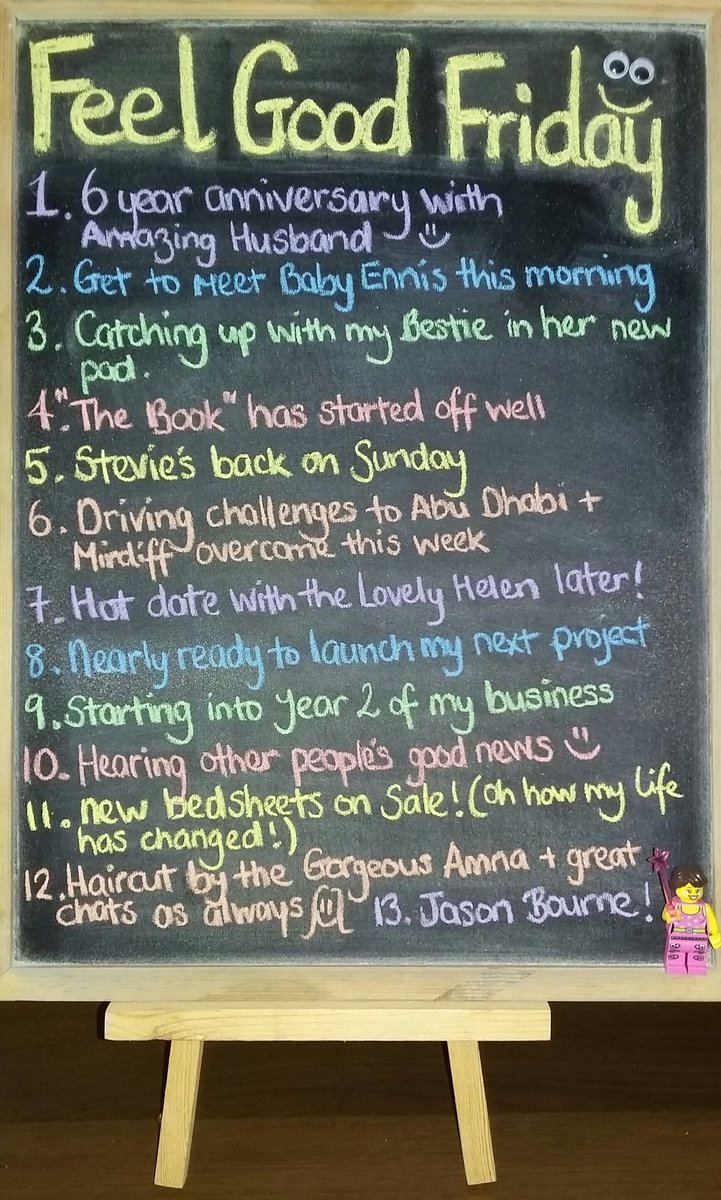 Feel Good Friday
1. 6 year anniversary with
Amazing Husband
2. Get to Meet Baby Ennis this morning
3. Catching up with my Bestie in her new
pad.
4. "The Book" has started off well
5. Stevie's back on Sunday
6. Driving challenges to Abu Dhabi +
Mirdiff overcome this week
7. Hot date with the Lovely Helen later!
8. Nearly ready to launch my next project
9. Starting into Year 2 of my business
10. Hearing other people's good news
11. new bedsheets on Sale! (oh how my life
has changed!)
12. Haircut by the Gorgeous Amna + great
chats as always
13. Jason Bourne!